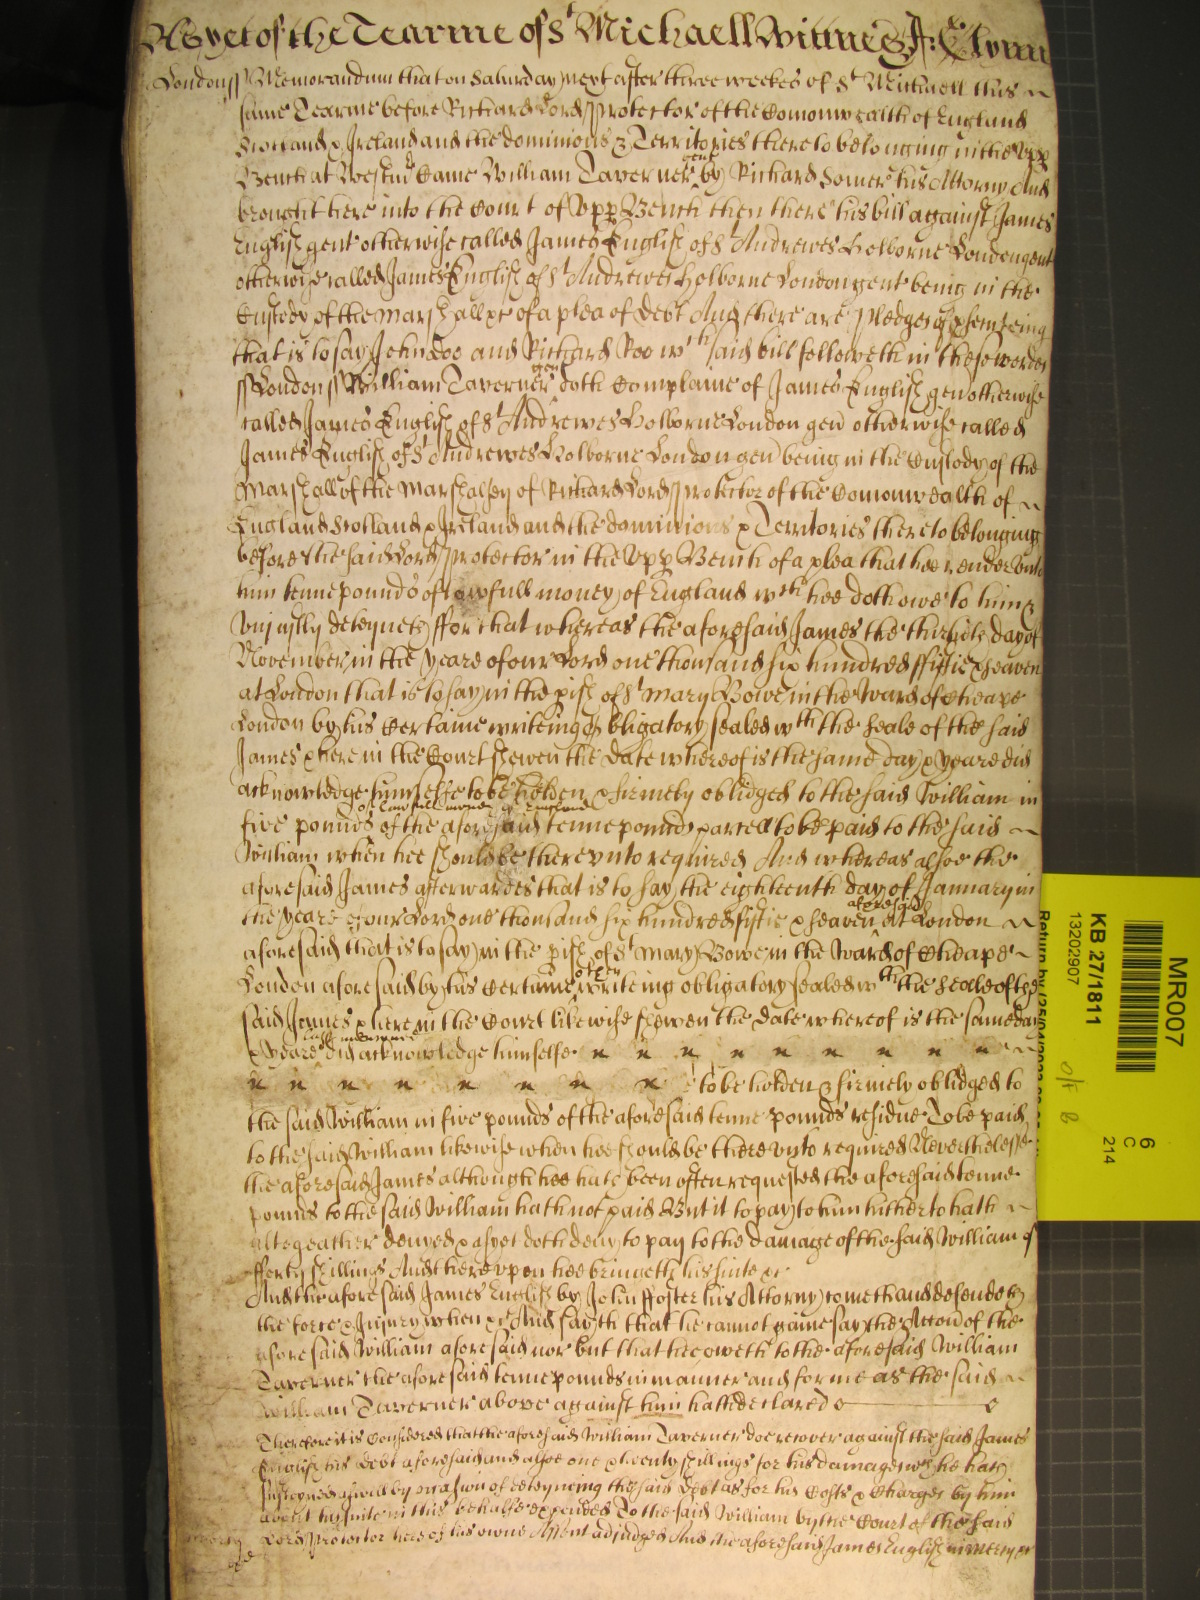 As yet of the Tearme of St Michaell Wittnes
London ss Memorandum that on Saturday next after three weekes of St Michaell this
same Tearme before Richard Lord Protector of the Comonwealth of England
Scotland & Ireland and the dominions & Territories thereto belonging in the Upp
Bench at Westmr Came William Taverner gent by Richard Somer his Attorny And
brought here into the Court of Upp Bench then there his bill against James
English gent otherwise called James English of St Andrewes Holborne London gent
otherwise called James English of St Andrewes Holborne London gent being in the
Custody of the Marshall &c of a plea of debt And there are pledges of
that is to say John Doo and Richard Roo wch said bill followeth in these wordes
ss London ss William Taverner gent doth Complaine of James English gen otherwise
called James English of St Andrewes Holborne London gen otherwise called
James English of St Andrewes Holborne London gen being in the Custody of the
Marshall of the Marshalsey of Richard Lord Protector of the Comonwealth of
England Scotland & Ireland and the dominions & Territories thereto belonging
before the said Lord Protector in the Upp Bench of a plea that hee render unto
him tenne pounds of lawfull money of England wch hee doth owe to him &
uniustly deteyneth ffor that whereas the aforesaid James the day of
November in the yeare of our Lord one thousand six hundred ffiftie & seaven
at London that is to say in the pish of St Mary Bowe in the Ward of Cheape
London by his Certaine writeing obligatory sealed wth the seale of the said
James & here in the Court shewen the date whereof is the same day & yeare did
acknowledge himselfe to be holden & firmely obliged to the said William in
of lawfull money of England
five pounds of the aforesaid tenne pounds parcell to be paid to the said
William when hee should be thereunto required And whereas alsoe the
aforesaid James afterwardes that is to say the eighteenth day of January in
the yeare of our Lord one thousand six hundred fiftie & seaven aforesaid at London
aforesaid that is to say in the pish of St Mary Bowe in the Ward of Cheape
London aforesaid by his Certaine other writeing obligatory sealed wth the seale of the
said James & here in the Court likewise shewen the date whereof is the same day
& yeare did acknowledge himselfe
to be holden & firmely obliged to
the said William in five pounds of the aforesaid tenne pounds residue To be paid
to the said William likewise when hee should be thereunto required Neverthelesse
the aforesaid James although hee hath been often requested the aforesaid tenne
pounds to the said William hath not paid But it to pay to him hitherto hath
altogeather denyed & as yet doth deny to pay to the damage of the said William of
fforty shillings And thereupon hee bringeth his suite &c
And the aforesaid James English by John ffoster his Attorny cometh and defendeth
the force & Injury when &c And sayth that he cannot gainesay the Accon of the
aforesaid William aforesaid nor but that hee oweth to the aforesaid William
Taverner the aforesaid tenne pounds in manner and forme as the said
William Taverner above against him hath declared
Therefore it is Considered that the aforesaid William Taverner doe recover against the said James
English his debt aforesaid and alsoe one & twenty shillings for his damages wch he hath
susteyned aswell by occasion of deteyneing the said debt as for his Costs & Charges by him
about his suite in this behalfe expended To the said William by the Court of the said
Lord Protector here of his owne Assent adjudged And the aforesaid James English in mercy &c
mercy
MR007
KB 27/1811
13202907
6
C
214